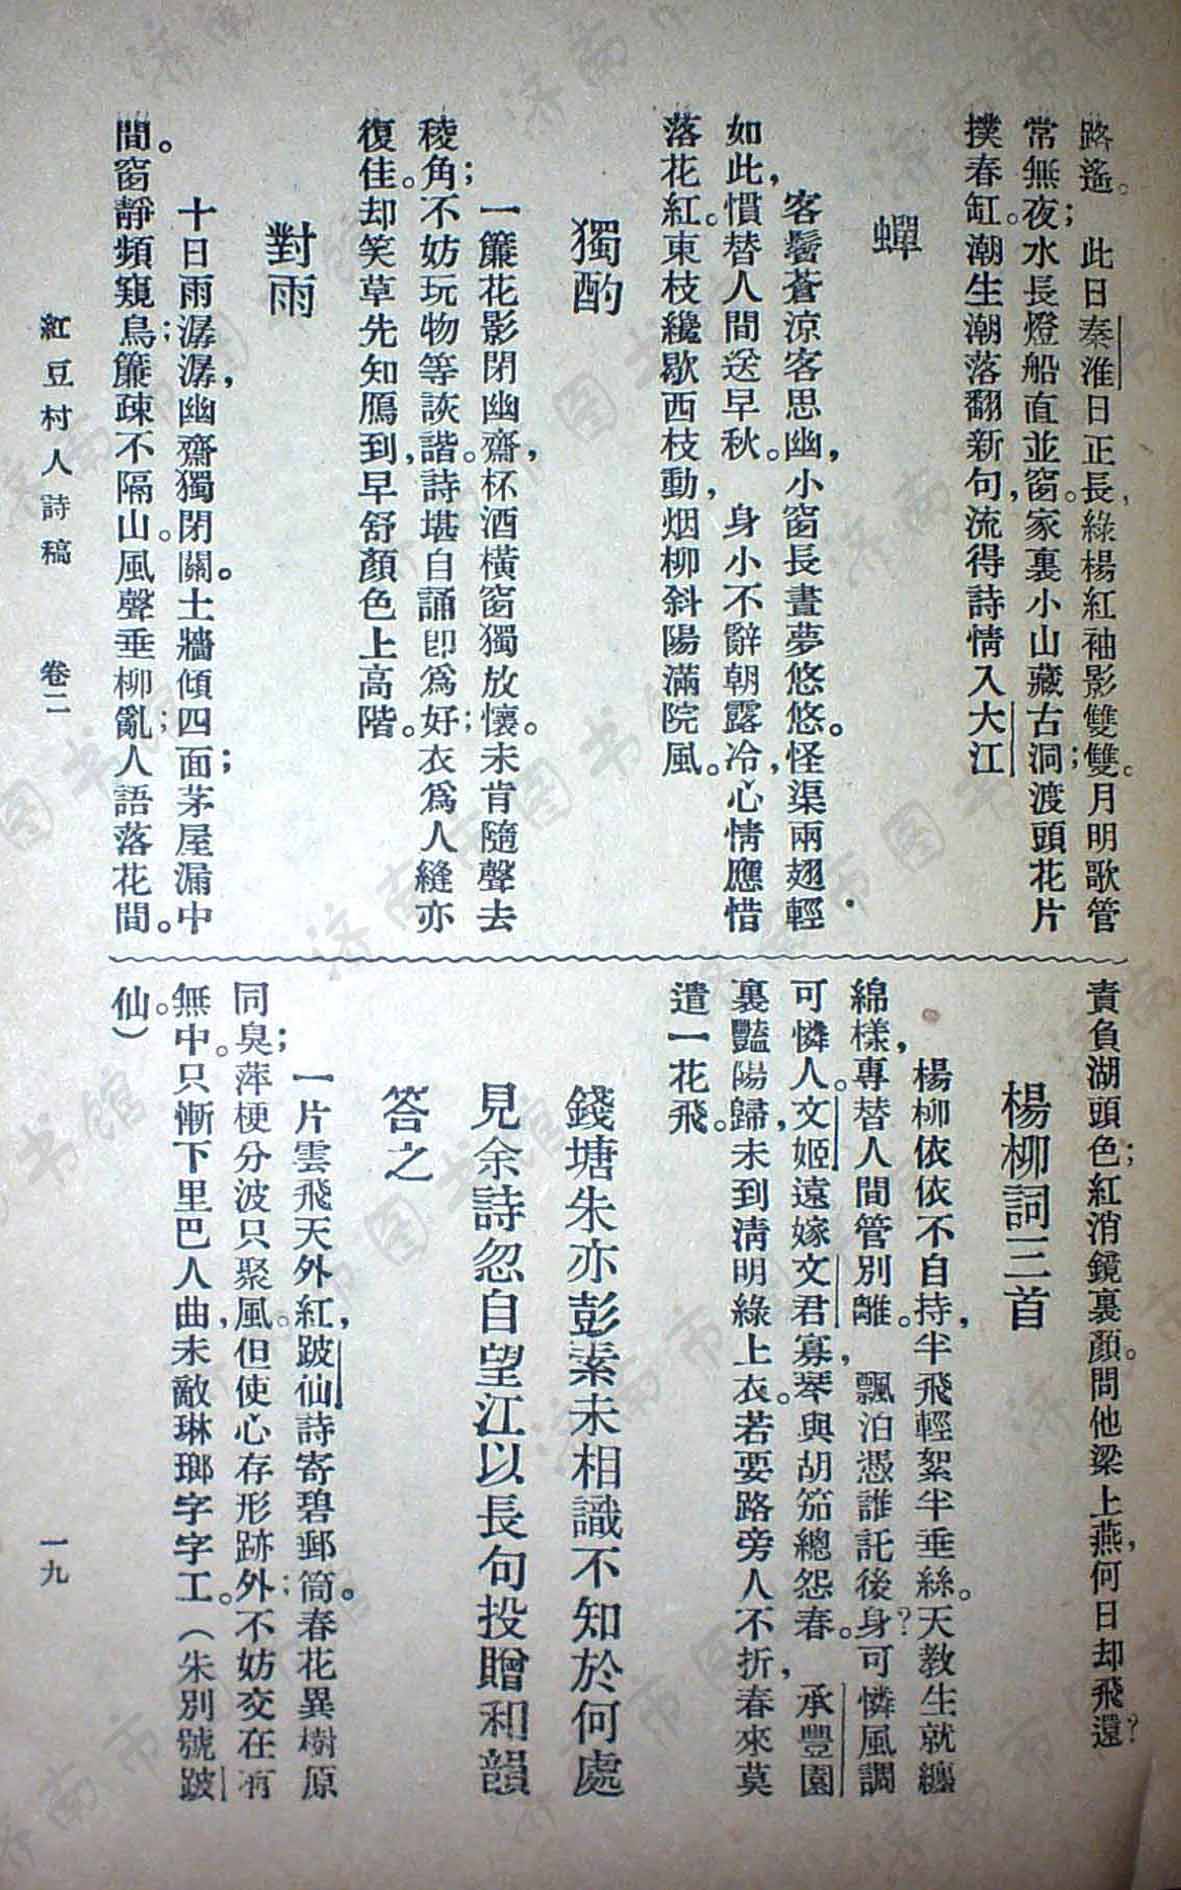 路遙。　此日秦淮日正長，綠楊紅袖影雙雙。月明歌管
常無夜；水長燈船直並窗。家裏小山藏古洞；渡頭花片
撲春缸。潮生潮落翻新句，流得詩情入大江
蟬
客鬢蒼涼客思幽，小窗長晝夢悠悠。怪渠兩翅輕
如此，慣替人間送早秋。　身小不辭朝露冷，心情應惜
落花紅。東枝纔歇西枝動，烟柳斜陽滿院風。
獨酌
一簾花影閉幽齋，杯酒橫窗獨放懷。未肯隨聲去
稜角；不妨玩物等詼諧。詩堪自誦卽爲好；衣爲人縫亦
復佳。却笑草先知鴈到，早舒顏色上高階。
對雨
十日雨潺潺，幽齋獨閉關。土牆傾四面；茅屋漏中
間。窗靜頻窺鳥；簾疎不隔山。風聲垂柳亂；人語落花間。
責負湖頭色；紅消鏡裏顏。問他梁上燕，何日却飛還？
楊柳詞三首
楊柳依依不自持，半飛輕絮半垂絲。天教生就纏
綿樣，專替人間管別離。　飄泊憑誰託後身？可憐風調
可憐人。文姬遠嫁文君寡，琴與胡笳總怨春。　承豐園
裏豔陽歸，未到淸明綠上衣。若要路旁人不折，春來莫
遣一花飛。
錢塘朱亦彭素未相識不知於何處
見余詩忽自望江以長句投贈和韻
答之
一片雲飛天外紅，跛仙詩寄碧郵筒。春花異樹原
同臭；萍梗分波只聚風。但使心存形跡外；不妨交在有
無中。只慚下里巴人曲，未敵琳瑯字字工。（朱別號跛
仙）
紅豆村人詩稿　卷二　一九
济南市图书馆